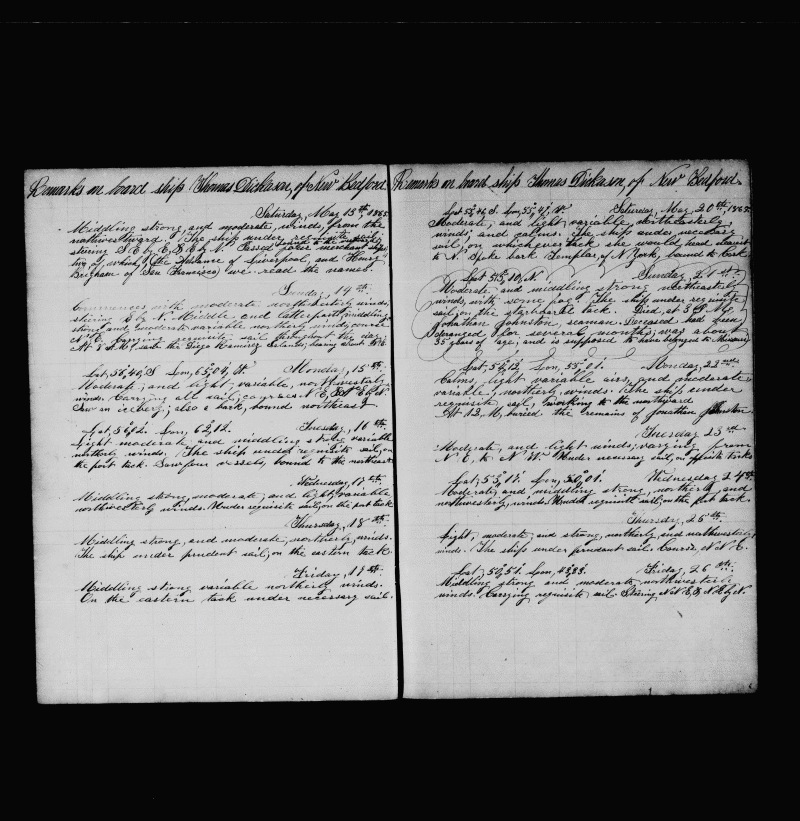 Remarks on board ship Thomas Dickason, of New Bedford
Saturday, May 13th 1865
Middling strong, and moderate, winds, from the
northwestward. The ship under requisite sail,
stering S.E. by E, & E by N. Passed four merchant ships
two of, which, (the of Liverpool, and Henry
Brigham of San Francisco) we read the names.
Sunday, 14th
Commences with moderate northwesterly winds,
stering E by N. Middle and latter part, middling
strong, and moderate variable northerly winds, course
N.E. Carrying requisite sail throughout the day.
At 8 A.M, saw the Diego Ramirez Islands, bearing about N.N.E.
Lat, 56,40, S Lon, 65,04, W Monday, 15th
Moderate, and light, variable, northwesterly
winds. Carrying all sail, course N.E, & N.E. by N.
Saw an iceberg; also a bark, bound northeast
Lat, 56,02. Lon, 62,12. Tuesday, 16th
Light moderate and middling strong variable
northerly winds. The ship under requisite sail, on
the port tack. Saw four vessels, bound to the northeast.
Wednesday, 17th
Middling strong, moderate, and light, variable
northwesterly winds. Under requisite sail, on the port tack
Thursday, 18th
Middling strong, and moderate, northerly, winds.
The ship under prudent sail; on the eastern tack.
Friday, 19th
Middling strong variable northerly winds.
On the eastern tack under necessary sail.
Remarks on board ship Thomas Dickason, of New Bedford.
Lat 53,46, S. Lon, 55,47, W. Saturday May 20th 1865
Moderate, and light, variable, northeasterly
winds; and calms. The ship under necessary
sail, on whichever tack she would head
to N. Spoke bark Templar, of N. York, bound to Cork
Sunday, 21st
Moderate and middling strong northeasterly
winds, with some fog. The ship under requisite
sail, on the starboard tack. Died, at 3 P.M,
Jonathan Johnston, seaman. Deceased had been
deranged for several months; was about
35 years of age; and is supposed to have belonged to Missouri
Lat, 54,12, Lon, 55,01. Monday, 22nd
Calms, light variable airs, and moderate
variable, northerly, winds. The ship under
requisite, sail, working to the northward
At 12, M, buried the remains of Jonathan Johnston.
Tuesday 23rd
Moderate, and light winds, varying from
N.E, to N.W. Under necessary sail, on opposite tacks
Lat; 53,17. Lon, 50,01. Wednesday 24th
Moderate, and middling strong, northerly, and
northwesterly, winds. Under requisite sail; on the port tack.
Thursday, 25th
Light, moderate, and strong, northerly and northwesterly
winds. The ships under prudent sail. Course, N.N.E.
Lat, 50,51. Lon, Friday, 26th
Middling strong and moderate, northwesterly
winds. Carrying requisite sail. Stering N.N.E, & N.E by N.